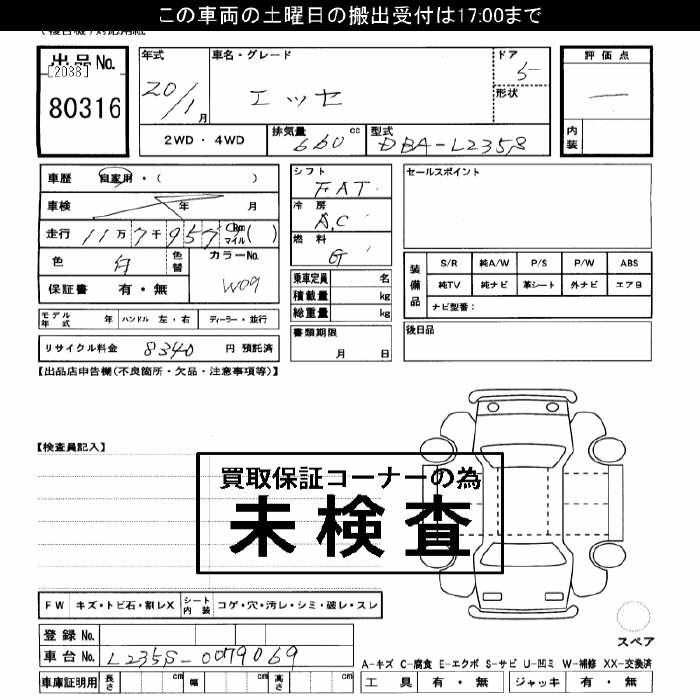 この車両の土曜日の搬出受付は17:00まで
出品No.
[2038]
80316
年式
20/1月
車名・グレード
エッセ
ドア
5
形状
評価点
—
内装
2WD・4WD
排気量
660 cc
型式
DBA-L235S
車歴 自家用・( )
車検 年 月
走行 11万7千957 Km マイル ( )
色 白
色替
カラーNo.
W09
保証書 有・無
シフト
FAT
冷房
A.C
燃料
G
乗車定員 名
積載量 kg
総重量 kg
書類期限
月 日
セールスポイント
装備品
S/R 純A/W P/S P/W ABS
純TV 純ナビ 革シート 外ナビ エアB
ナビ型番:
後日品
モデル年式 年 ハンドル 左・右 ディーラー・並行
リサイクル料金 8340 円 預託済
【出品店申告欄(不良箇所・欠品・注意事項等)】
【検査員記入】
買取保証コーナーの為
未検査
FW キズ・トビ石・割レX シート内装 コゲ・穴・汚レ・シミ・破レ・スレ
登録No.
車台No. L235S-0079069
車庫証明用 長さ cm 幅 cm 高さ cm
スペア
A-キズ C-腐食 E-エクボ S-サビ U-凹ミ W-補修 XX-交換済
工具 有・無 ジャッキ 有・無